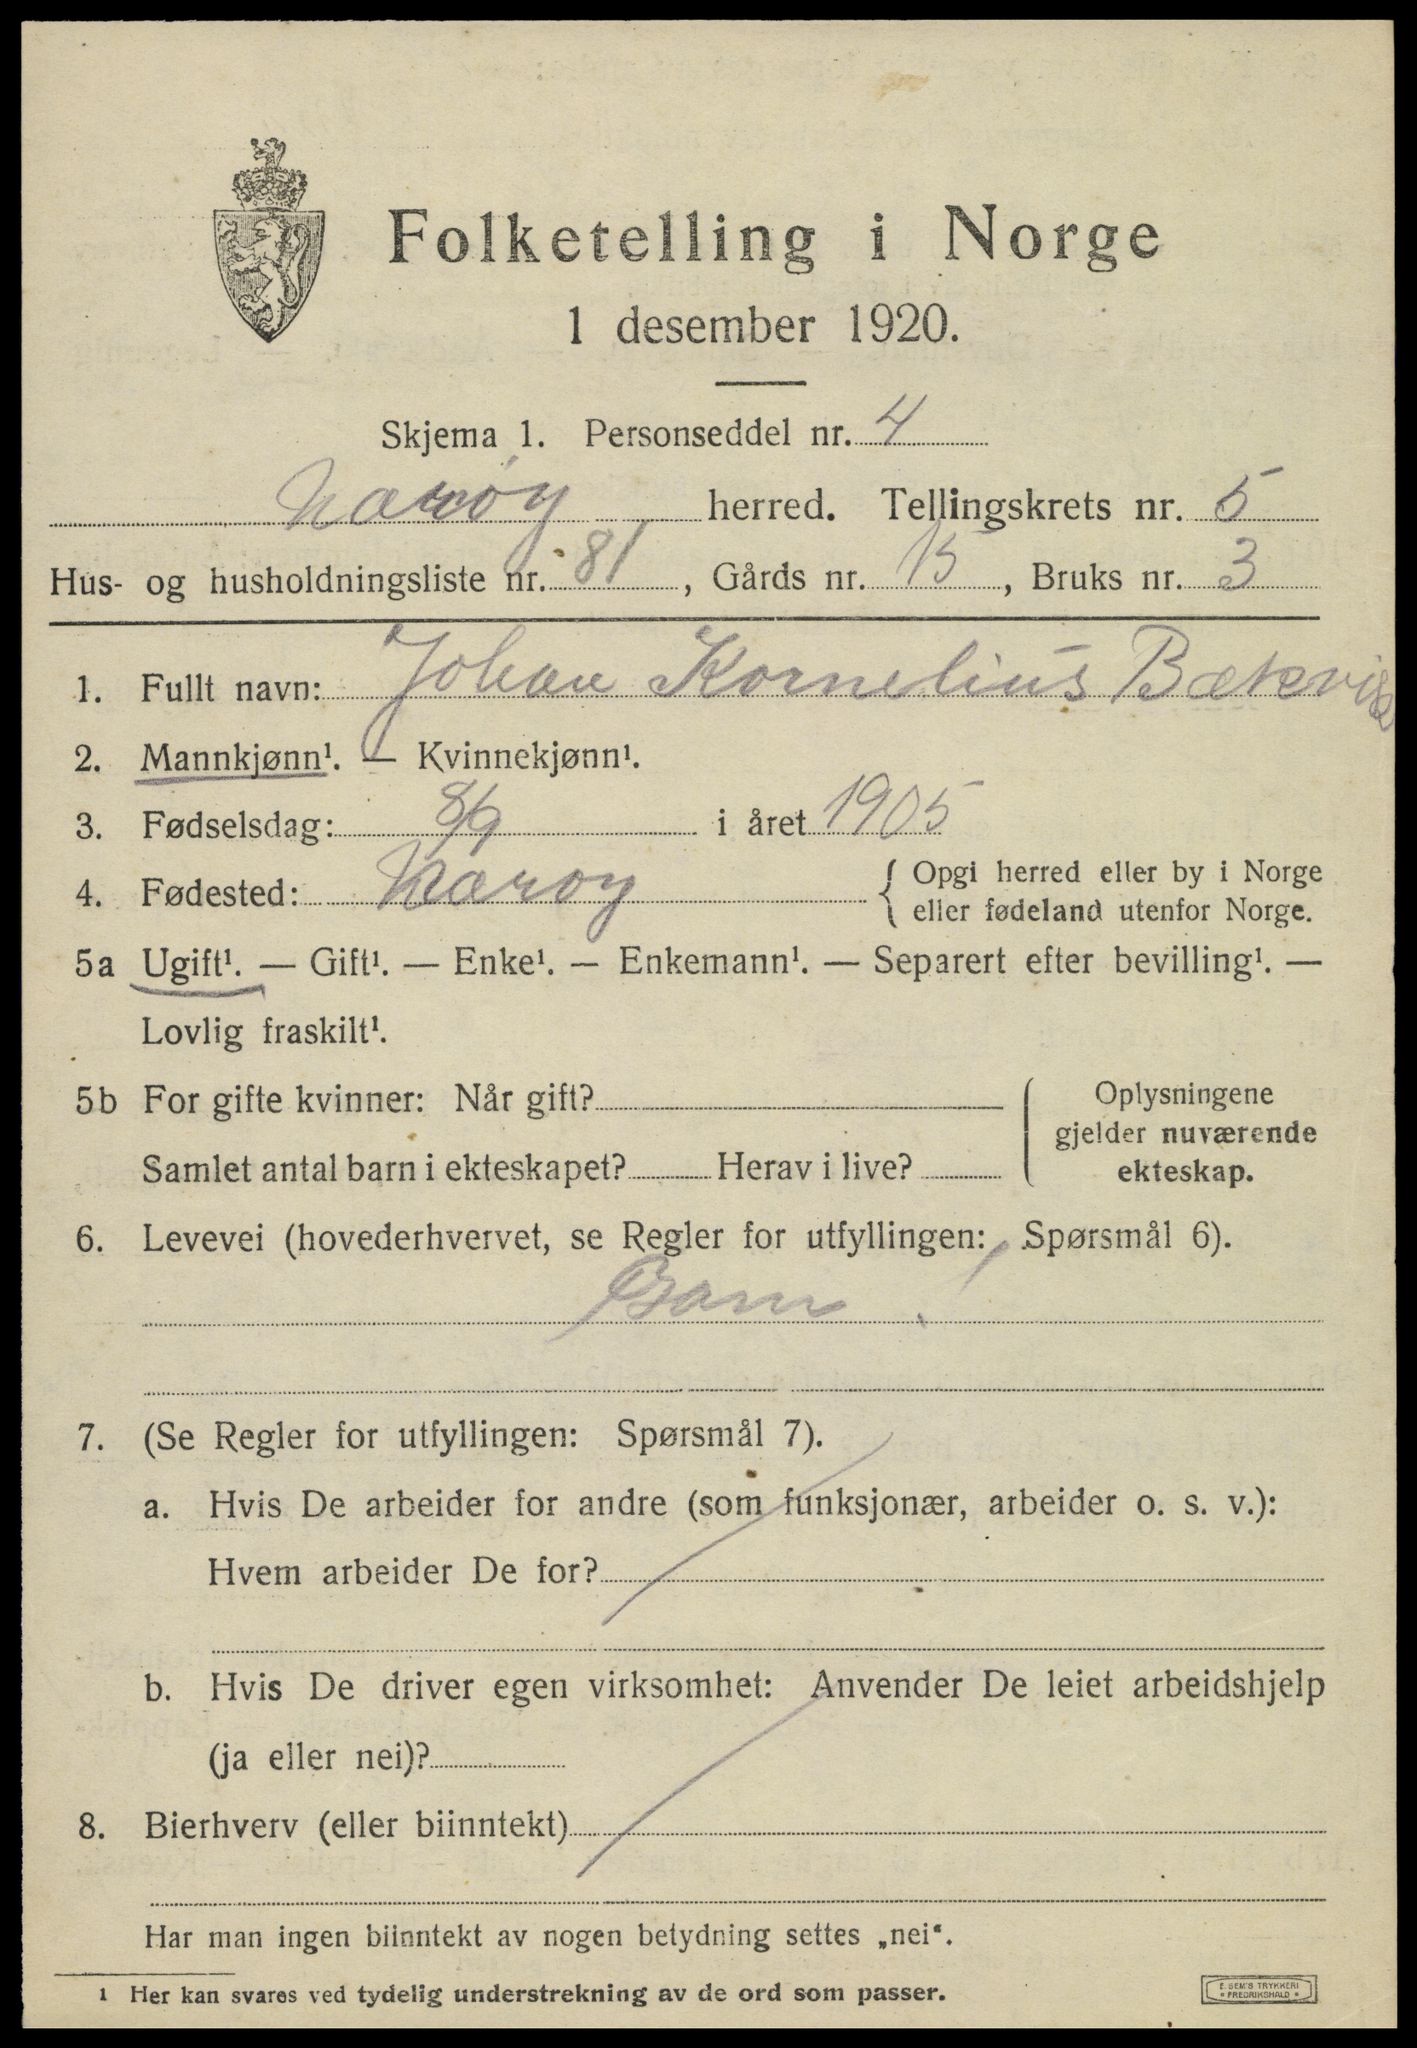 Folketelling i Norge
1 desember 1920.
Skjema 1. Personseddel nr. 4
Nærøy herred. Tellingskrets nr. 5
Hus- og husholdningsliste nr. 81, Gårds nr. 15, Bruks nr. 3
1. Fullt navn: Johan Kornelius Bækvik
2. Mannkjønn¹. — Kvinnekjønn¹.
3. Fødselsdag: 8/9 i året 1905
4. Fødested: Nærøy { Opgi herred eller by i Norge
eller fødeland utenfor Norge.
5a Ugift¹. — Gift¹. — Enke¹. — Enkemann¹. — Separert efter bevilling¹. —
Lovlig fraskilt¹.
5b For gifte kvinner: Når gift?
Samlet antal barn i ekteskapet? Herav i live?
Oplysningene
gjelder nuværende
ekteskap.
6. Levevei (hovederhvervet, se Regler for utfyllingen: Spørsmål 6).
Barn
7. (Se Regler for utfyllingen: Spørsmål 7).
a. Hvis De arbeider for andre (som funksjonær, arbeider o. s. v.):
Hvem arbeider De for?
b. Hvis De driver egen virksomhet: Anvender De leiet arbeidshjelp
(ja eller nei)?
8. Bierhverv (eller biinntekt)
Har man ingen biinntekt av nogen betydning settes „nei“.
1 Her kan svares ved tydelig understrekning av de ord som passer.
E. SEM'S TRYKKERI
• FREDRIKSHALD •